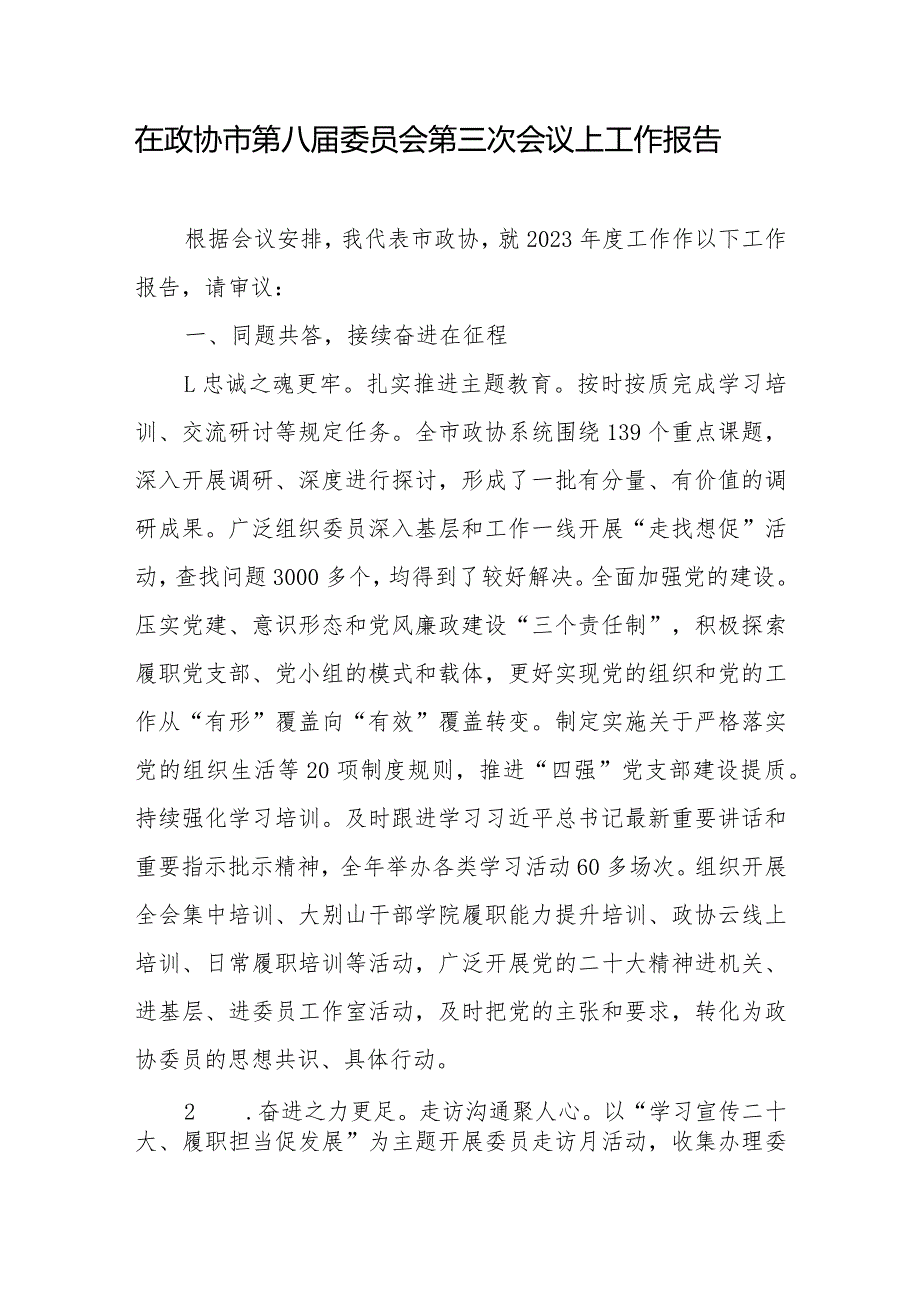 在政协市第八届委员会第三次会议上工作报告
根据会议安排，我代表市政协，就2023年度工作作以下工作
报告，请审议：
一、同题共答，接续奋进在征程
L忠诚之魂更牢。扎实推进主题教育。按时按质完成学习培
训、交流研讨等规定任务。全市政协系统围绕139个重点课题，
深入开展调研、深度进行探讨，形成了一批有分量、有价值的调
研成果。广泛组织委员深入基层和工作一线开展“走找想促”活
动，查找问题3000多个，均得到了较好解决。全面加强党的建设。
压实党建、意识形态和党风廉政建设“三个责任制”，积极探索
履职党支部、党小组的模式和载体，更好实现党的组织和党的工
作从“有形”覆盖向“有效”覆盖转变。制定实施关于严格落实
党的组织生活等20项制度规则，推进“四强”党支部建设提质。
持续强化学习培训。及时跟进学习习近平总书记最新重要讲话和
重要指示批示精神，全年举办各类学习活动60多场次。组织开展
全会集中培训、大别山干部学院履职能力提升培训、政协云线上
培训、日常履职培训等活动，广泛开展党的二十大精神进机关、
进基层、进委员工作室活动，及时把党的主张和要求，转化为政
协委员的思想共识、具体行动。
2 .奋进之力更足。走访沟通聚人心。以“学习宣传二十
大、履职担当促发展”为主题开展委员走访月活动，收集办理委